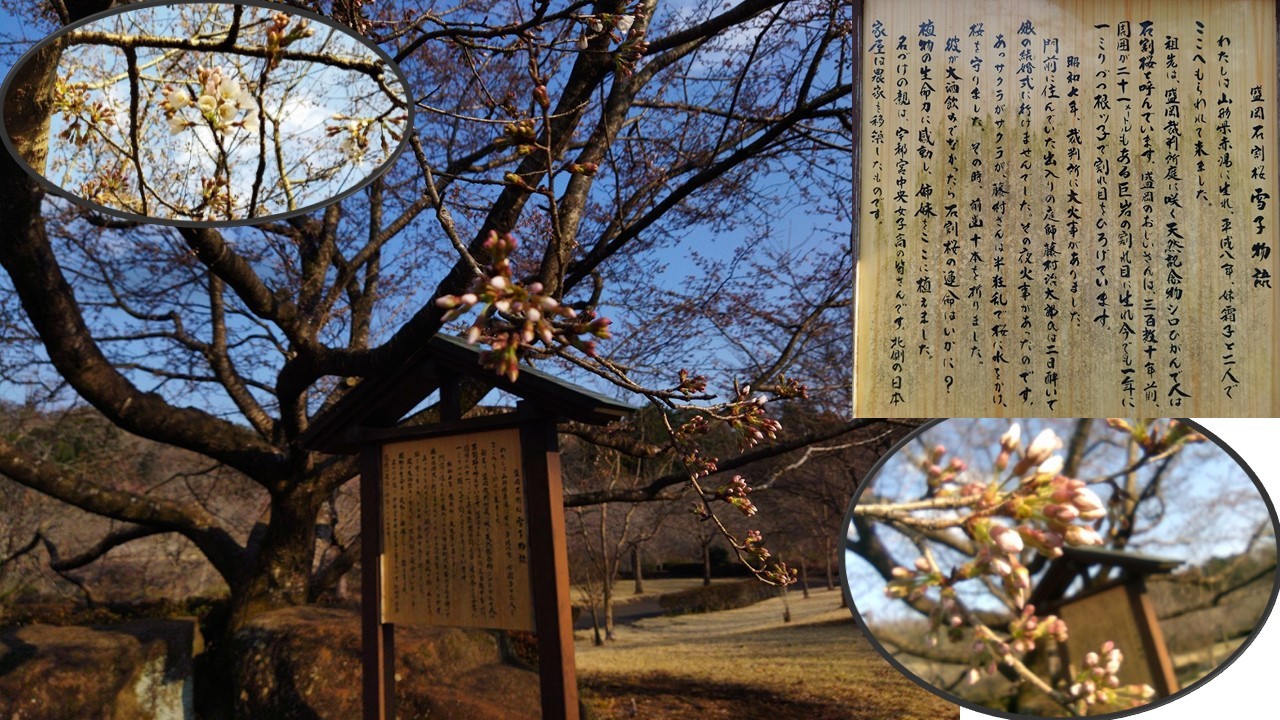 盛岡石割桜 雪子物語
わたしは山形県赤湯に生れ、平成八年、妹霜子と二人で
ここへもらわれて来ました。
祖先は、盛岡裁判所庭に咲く天然記念物シロひがんで人は
石割桜と呼んでいます。盛岡のおじいさんは、三百数十年前、
周囲が二十一メートルもある巨岩の割れ目に生れ今でも一年に
一ミリづつ根ッ子で割れ目をひろげています。
昭和七年、裁判所に大火事がありました。
門前に住んでいた出入りの庭師藤村治太郎は二日酔いで
娘の結婚式に行けませんでした。その夜火事があったのです。
あっサクラがサクラが、藤村さんは半狂乱で桜に水をかけ、
桜を守りました。その時、前歯十本を折りました。
彼が大酒飲みでなかったら石割桜の運命はいかに?
植物の生命力に感動し、姉妹をここに植えました。
名づけの親は、宇都宮中央女子高の皆さんです。北側の日本
家屋は農家を移築したものです。